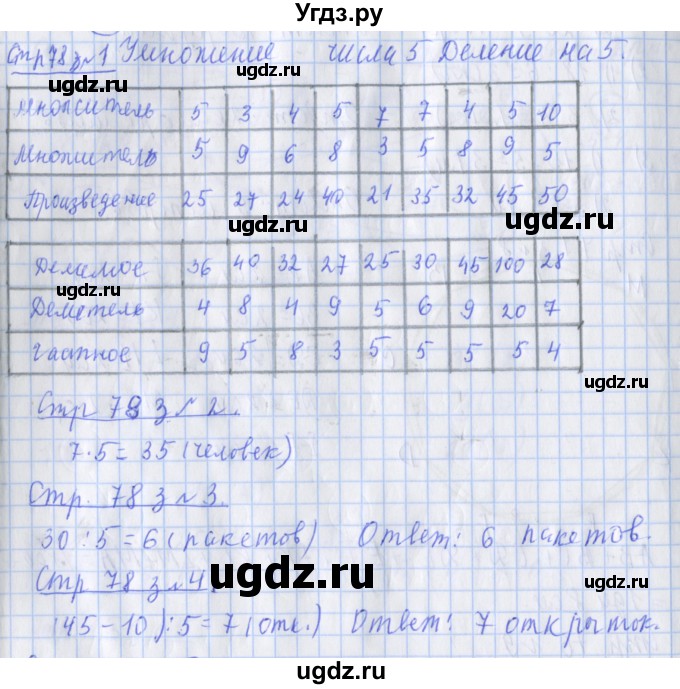 Угдз.ру
Стр 78 з№1 Умножение числа 5 Деление на 5.
Множитель 5 3 4 5 7 7 4 5 10
Множитель 5 9 6 8 3 5 8 9 5
Произведение 25 27 24 40 21 35 32 45 50
ugdz.ru ugdz.ru
Делимое 36 40 32 27 25 30 45 100 28
ugdz.ru
Делитель 4 8 4 9 5 6 9 20 7
Частное 9 5 8 3 5 5 5 5 4
ugdz.ru
Стр 78 з№2.
ugdz.ru
7·5=35 (человек)
Стр. 78 з№3.
ugdz.ru
30:5=6 (пакетов) Ответ: 6 пакетов.
ugdz.ru
Стр 78 з№4.
(45-10):5=7 (отк.) Ответ: 7 открыток.
ugdz.ru ugdz.ru